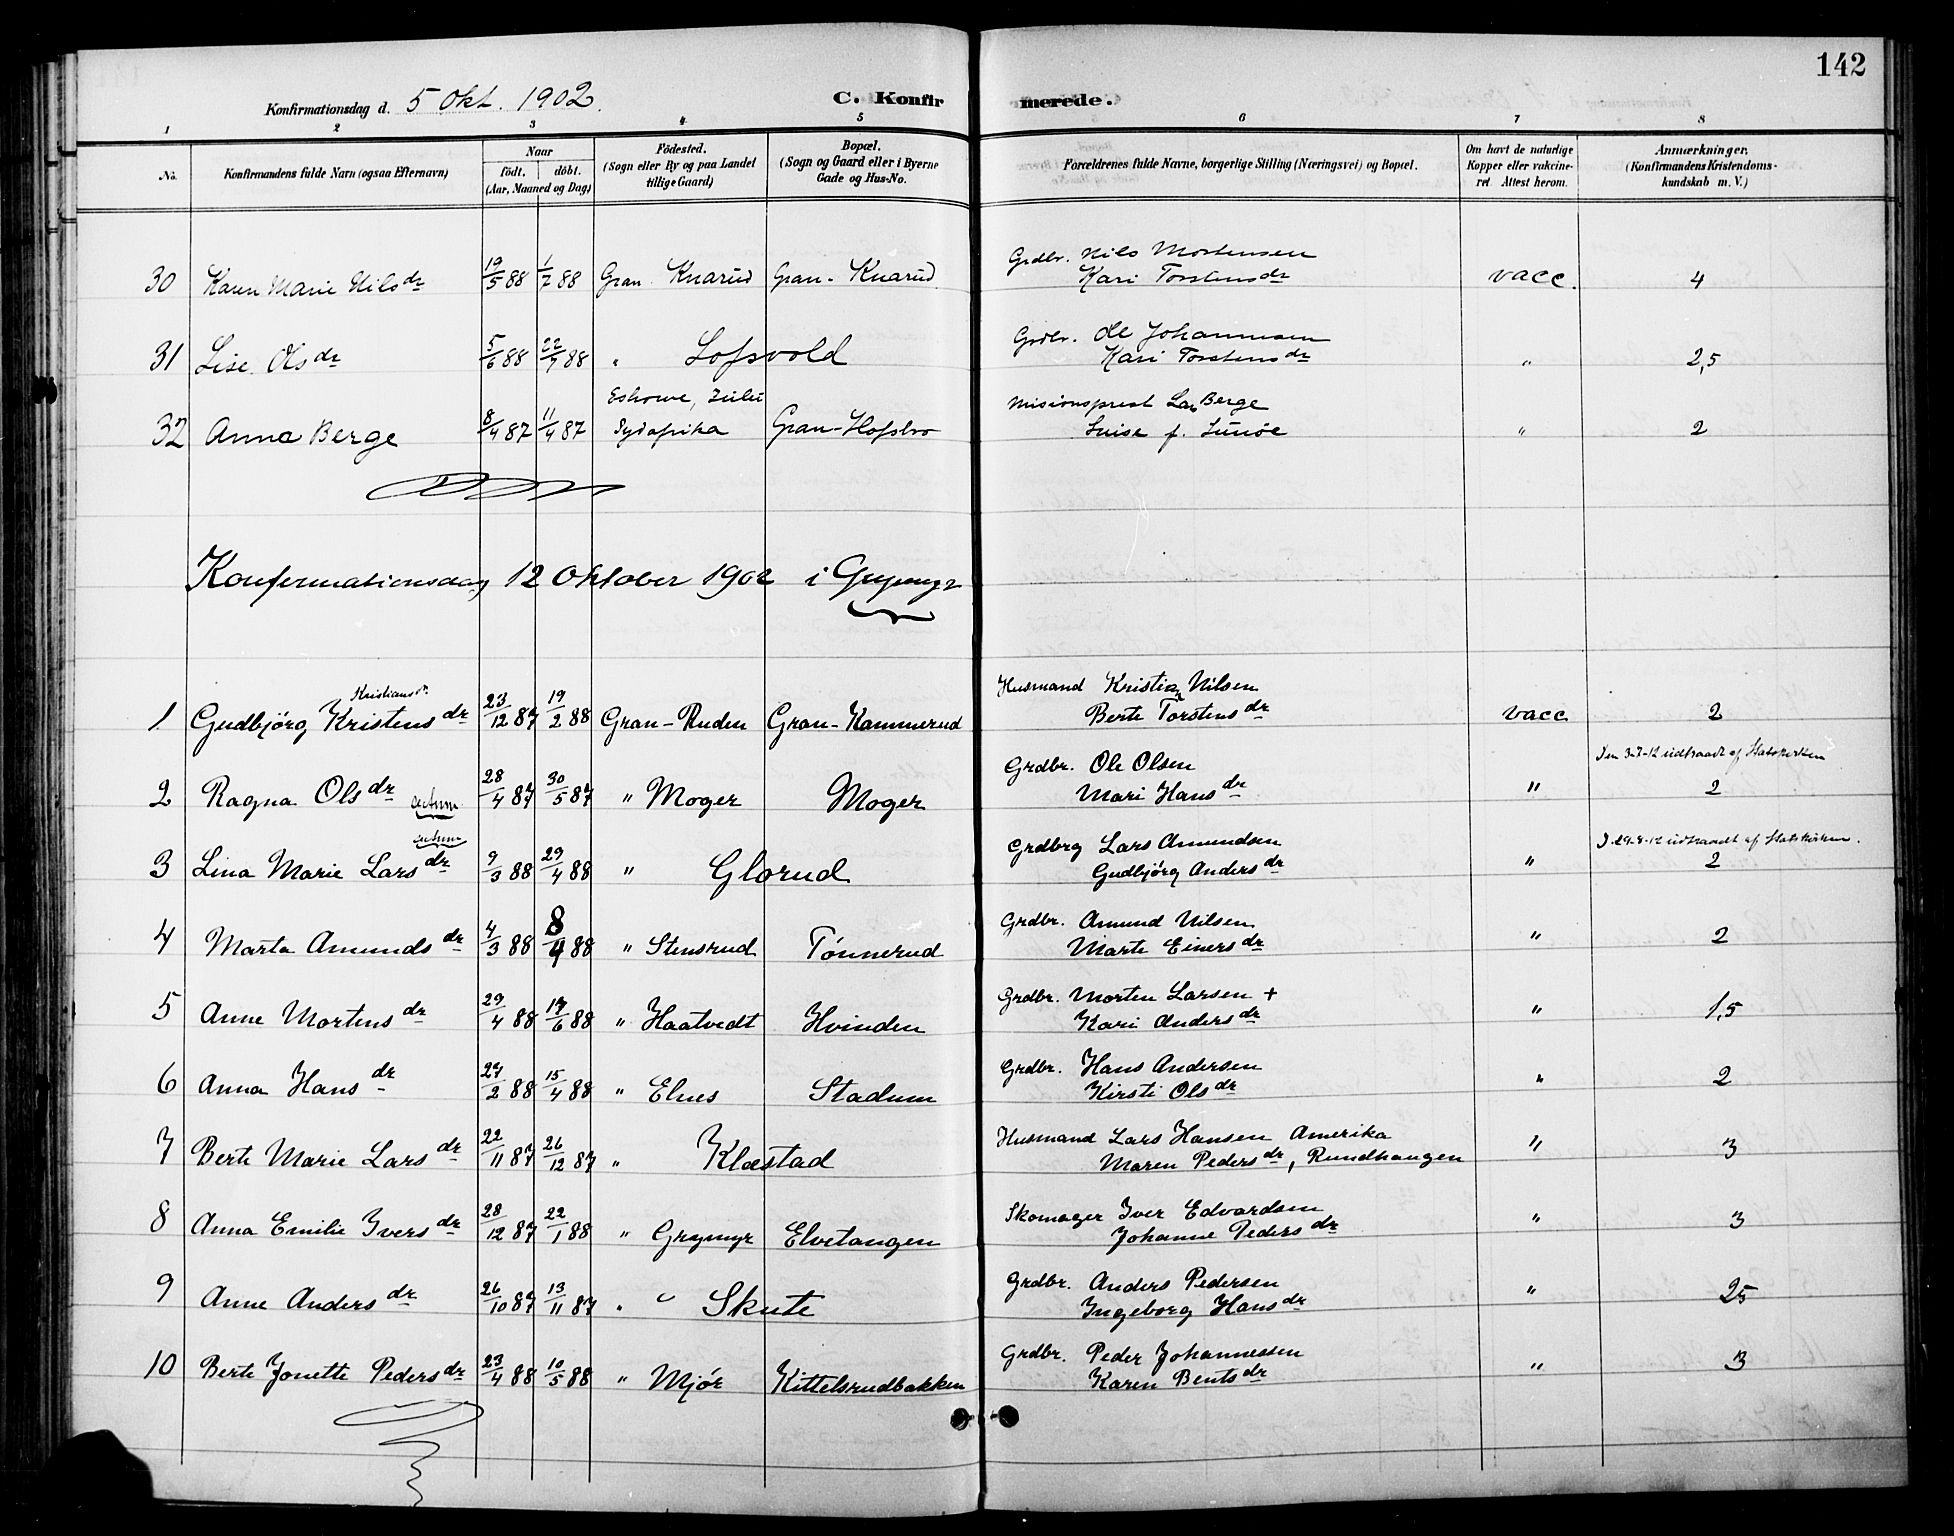 142
Konfirmationsdag d. 5 Okt. 1902. C. Konfirmerede.
1 2 3 4 5 6 7 8
No. Konfirmandens fulde Navn (ogsaa Efternavn) Naar født. døbt. (Aar, Maaned og Dag) Fødested. (Sogn eller By og paa Landet tillige Gaard) Bopæl. (Sogn og Gaard eller i Byerne Gade og Hus-No. Forældrenes fulde Navne, borgerlige Stilling (Næringsvei) og Bopæl. Om havt de naturlige Kopper eller vakcineret. Attest herom. Anmærkninger. (Konfirmandens Kristendomskundskab m. V.)
30 Karen Marie Nilsdr 19/5 88 1/7 88 Gran Knarud Gran - Knarud Grdbr. Nils Mortensen
Kari Torstensdr vacc. 4
31 Lise Olsdr 5/6 88 22/7 88 " Lofsvold Grdbr. Ole Johannesen
Kari Torstensdr " 2,5
32 Anna Berge 8/4 87 11/4 87 Eshowe, Zulu
Sydafrika Gran - Hofsbro Misionsprest Lars Berge
Luise f. " 2
Konfermationsdag 12 Oktober 1902 i
1 Gudbjörg Kristensdr Kristiansdr. 23/12 87 19/2 88 Gran - Ruden Gran - Kammerud Husmand Kristian Nilsen
Berte Torstensdr vacc 2
Den 3-7-12 udtraadt af Statskirken
2 Ragna Olsdr 28/4 87 30/5 87 " Moger Moger Grdbr. Ole Olsen
Mari Hansdr " 2
D. 29-8-12 udtraadt af Statskirken.
3 Lina Marie Larsdr 9/3 88 29/4 88 " Glorud Grdbrg Lars Amundsen
Gudbjörg Andersdr " 2
4 Marta Amundsdr 4/3 88 8/4 88 " Stensrud Tønnerud Grdbr. Amund Nilsen
Marte Einersdr " 2
5 Anne Mortensdr 29/4 88 17/6 88 " Haatvedt Hvinden Grdbr. Morten Larsen +
Kari Andersdr " 1,5
6 Anna Hansdr 27/2 88 15/4 88 " Elnes Stadum Grdbr. Hans Andersen
Kirsti Olsdr " 2
7 Berte Marie Larsdr 22/11 87 26/12 87 " Klæstad Husmand Lars Hansen Amerika
Maren Pedersdr, Rundhaugen " 3
8 Anna Emilie Iversdr 28/12 87 22/1 88 " Grymyr Elvetangen Skomager Iver Edvardsen
Johanne Pedersdr " 3
9 Anne Andersdr 26/10 87 13/11 87 " Skute Grdbr. Anders Pedersen
Ingeborg Hansdr " 25
10 Berte Jonette Pedersdr 23/4 88 10/5 88 " Mjör Kittelsrudbakken Grdbr. Peder Johannessen
Karen Bentsdr " 3